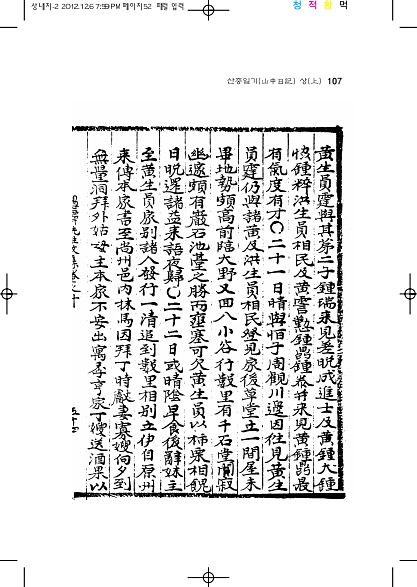 상내지-2 2012.12.6 7:59 PM 페이지52 패럴 입력
청 적 황 먹
산중일기(山中日記) 상(上) 107
黃生員霆與其第二子鍾瑞來見差晩成進士及黃鍾大鍾
鍾粹洪生員相民及黃 鍾 鍾 來見黃鍾 最
有氣度有才〇二十一日晴與 子周觀川邊因往見黃生
員霆仍與諸黃及洪生員相民發見家後草堂立一間屋未
畢地勢頗高前臨大野又四八小谷行數里有千石堂 寂
幽邃頗有巖石池臺之勝而壅塞可欠黃生員以柿果相餽
日晩還諸益來話夜歸〇二十二日或晴陰早食後辭妹主
至黃生員家別諸人發行一淸追到數里相別立伊自原州
來傳本家書至尙州邑內抹馬因拜丁時獻妻寡嫂向夕到
無量洞拜外姑 母主本家不安出寓 家丁嫂送酒果以